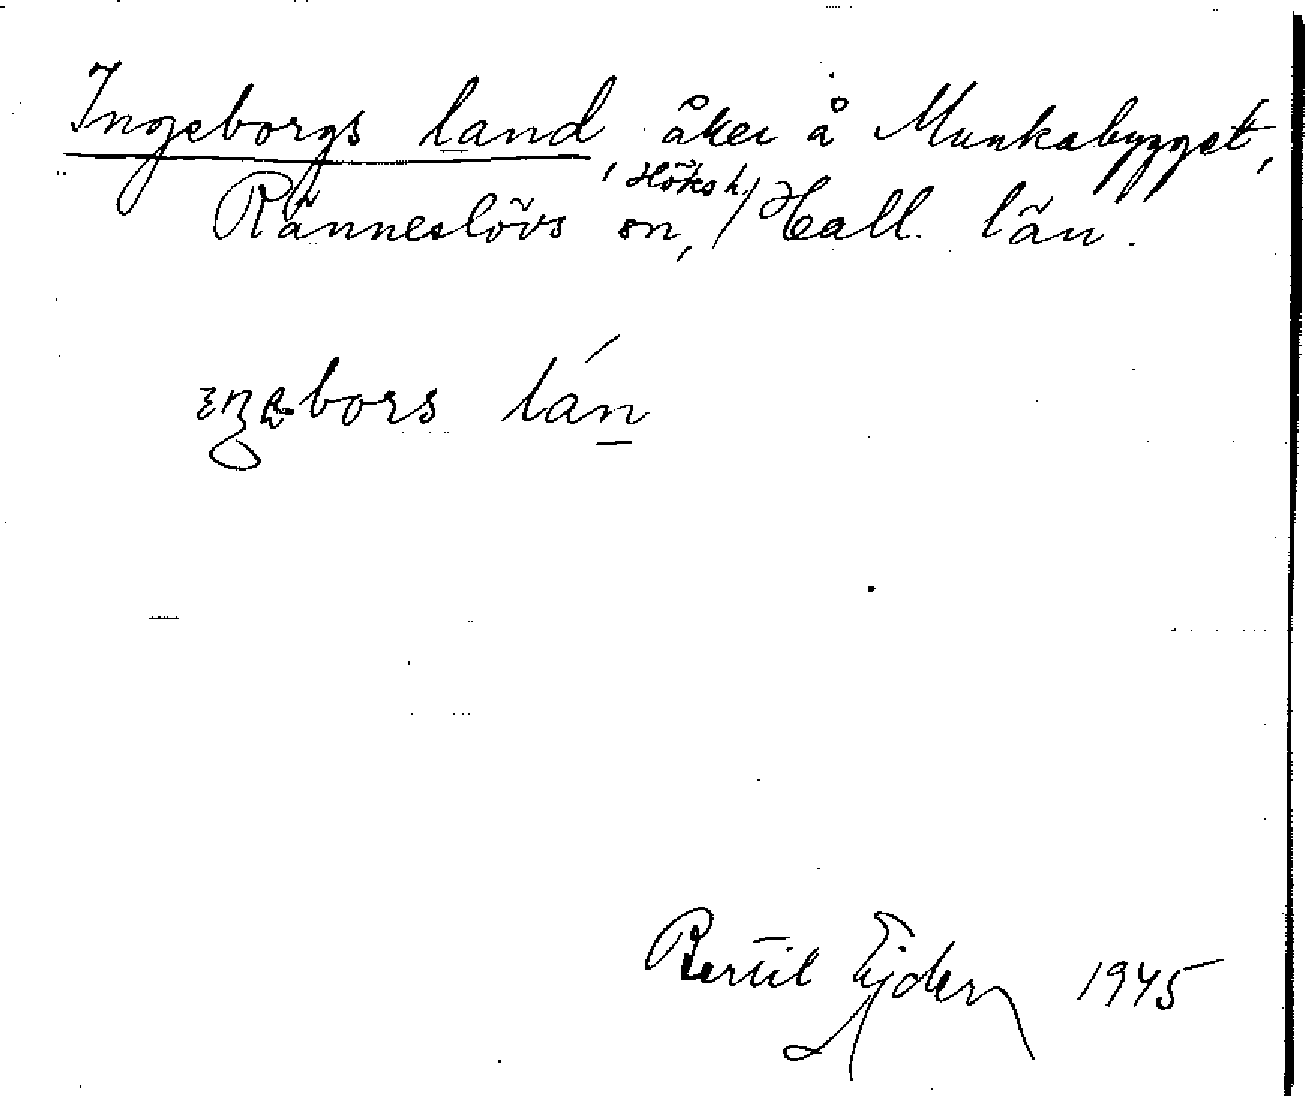 Ingeborgs land, åker å Munkabygget,
Ränneslövs sn, Höks h./ Hall. län.
bors lán
Bertil Ejder 1945